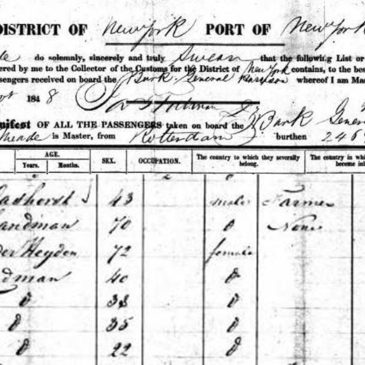 DISTRICT OF New York PORT OF New York
do solemnly, sincerely and truly Swear that the following List or
red by me to the Collector of the Customs for the District of New York contains, to the bes
sengers received on board the Bark General whereof I am Mas
184 8
nifest OF ALL THE PASSENGERS taken on board the Bark Gener
Meade is Master, from Rotterdam burthen 246
AGE. SEX. OCCUPATION. The country to which they severally belong. The country in wh
Years. Months. become in
43 male Farmer
andman 70 d None
der Heyden 72 female
dman 40 d
d 38 d
d 35 d
d 22 d